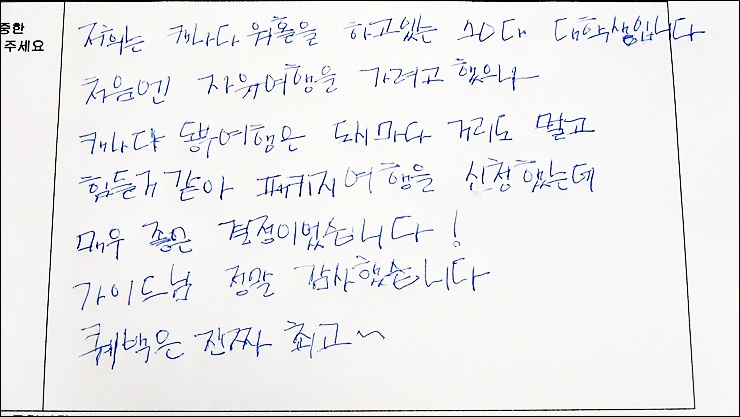 중한
주세요
저희는 캐나다 워홀을 하고있는 20대 대학생입니다
처음엔 자유여행을 가려고 했으나
캐나다 동부여행은 도시마다 거리도 멀고
힘들거같아 패키지여행을 신청했는데
매우 좋은 결정이었습니다!
가이드님 정말 감사했습니다
퀘백은 진짜 최고~